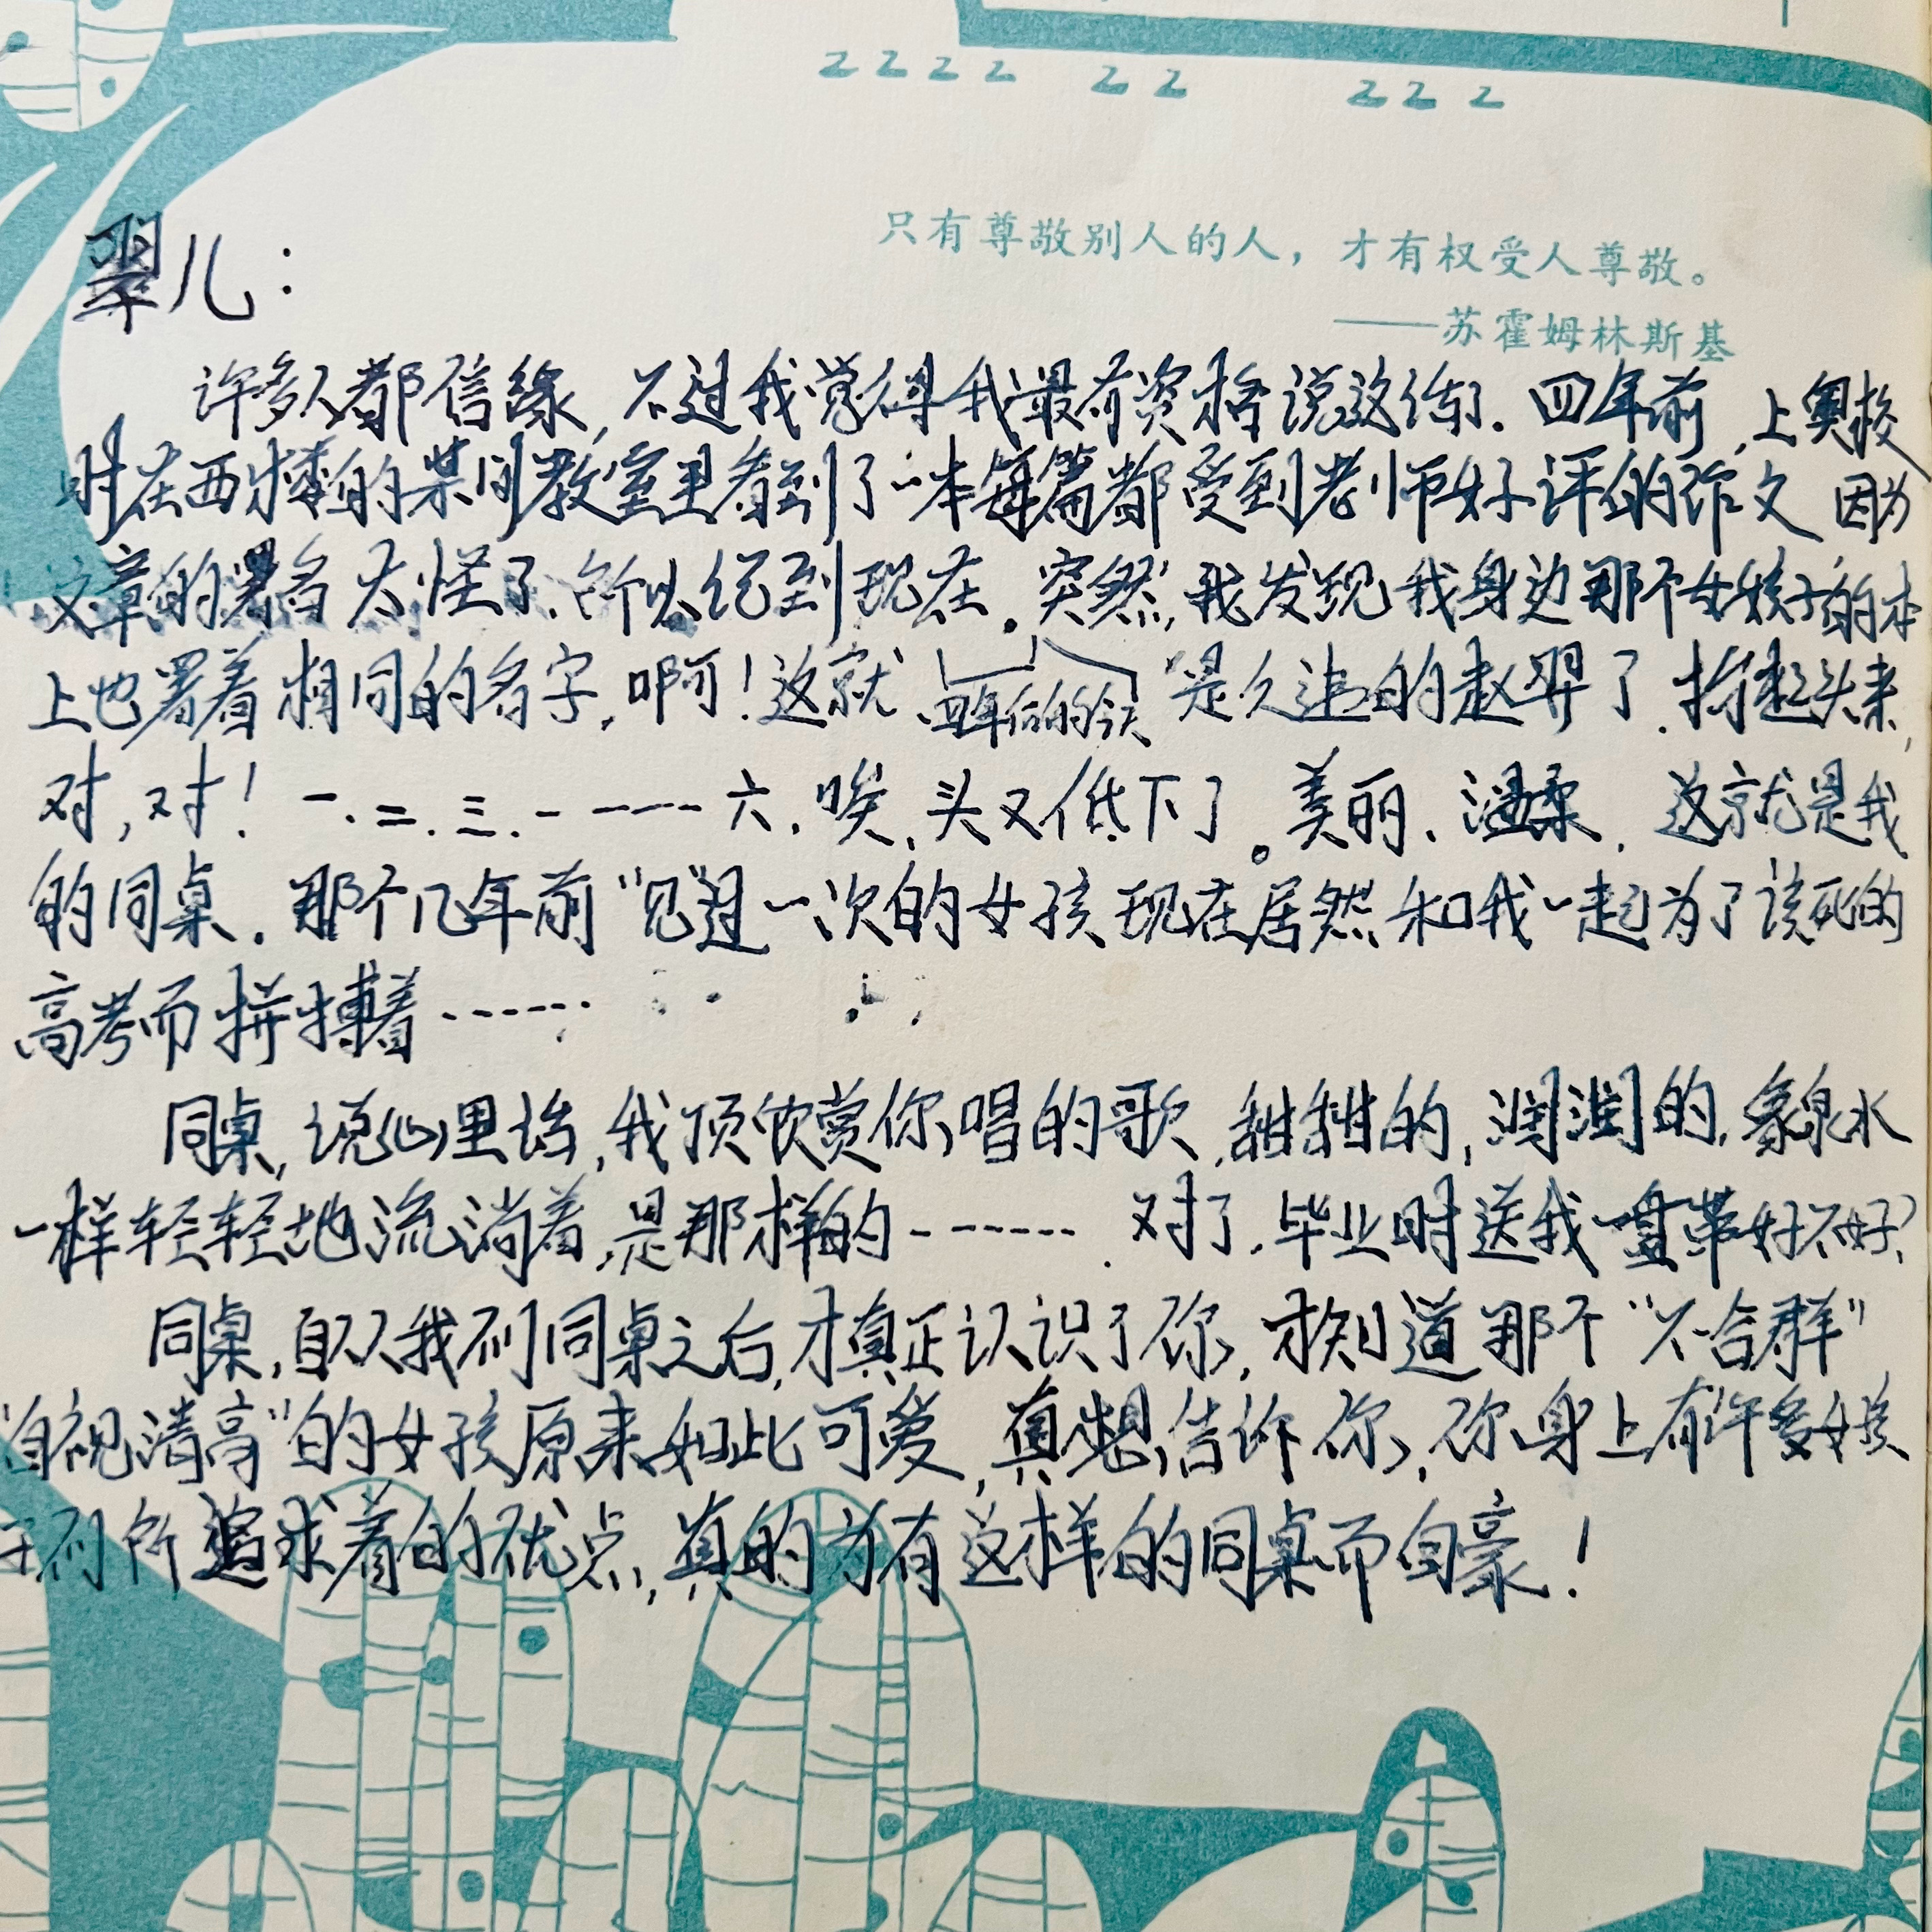 2222 22 222
只有尊敬别人的人，才有权受人尊敬。
——苏霍姆林斯基
翠儿：
许多人都信缘，不过我觉得我最有资格说这话了。四年前，上奥校
时在西楼的某间教室里看到了一本每篇都受到老师好评的作文，因为
文章的署名太怪了，所以记到现在。突然，我发现我身边那个女孩子的本
上也署着相同的名字，啊！这就
四年后的今天
是久违的赵翠了。抬起头来，
对，对！一.二.三.------六，唉，头又低下了。美丽、温柔，这就是我
的同桌。那个几年前“见”过一次的女孩现在居然和我一起为了该死的
高考而拼搏着……
同桌，说心里话，我顶欣赏你唱的歌，甜甜的，润润的，象泉水
一样轻轻地流淌着，是那样的……对了，毕业时送我一盘带好不好？
同桌，自从我们同桌之后，才真正认识了你，才知道那个“不合群”
自视清高”的女孩原来如此可爱，真想告诉你，你身上有许多女孩
子们所追求着的优点，真的为有这样的同桌而自豪！